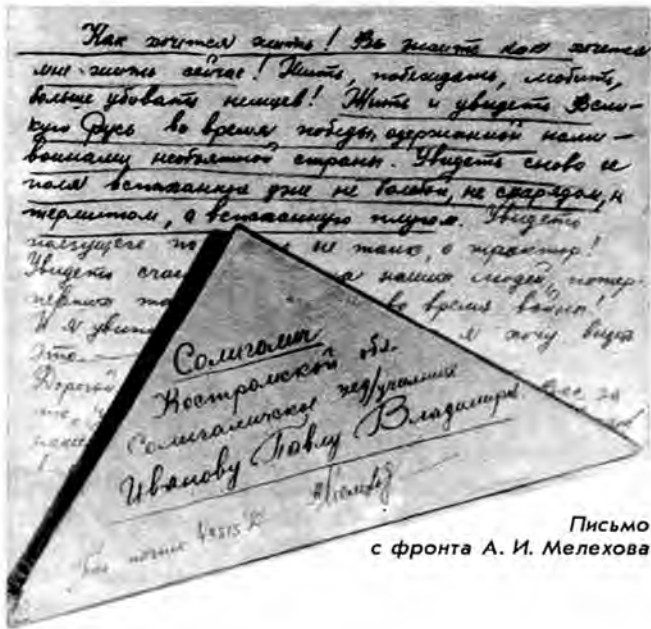 Как хочется жить! Вы знаете как хочется
мне жить сейчас! Жить, побеждать, любить,
больше убивать немцев! Жить и увидеть Вели-
кую Русь во время победы, одержанной нами –
воинами необъятной страны. Увидеть снова ее
поля вспаханную уже не бомбой, не снарядом, н
термитом, а вспаханную плугом. Увидеть
ползущего по не танк, а трактор!
Увидеть наших людей, потер-
певших во время войны!
И я я хочу видеть
это
Дорогой
Солигалич
Костромской обл.
Солигаличское педучилище
Иванову Павлу Владимиров.
Письмо
с фронта А. И. Мелехова